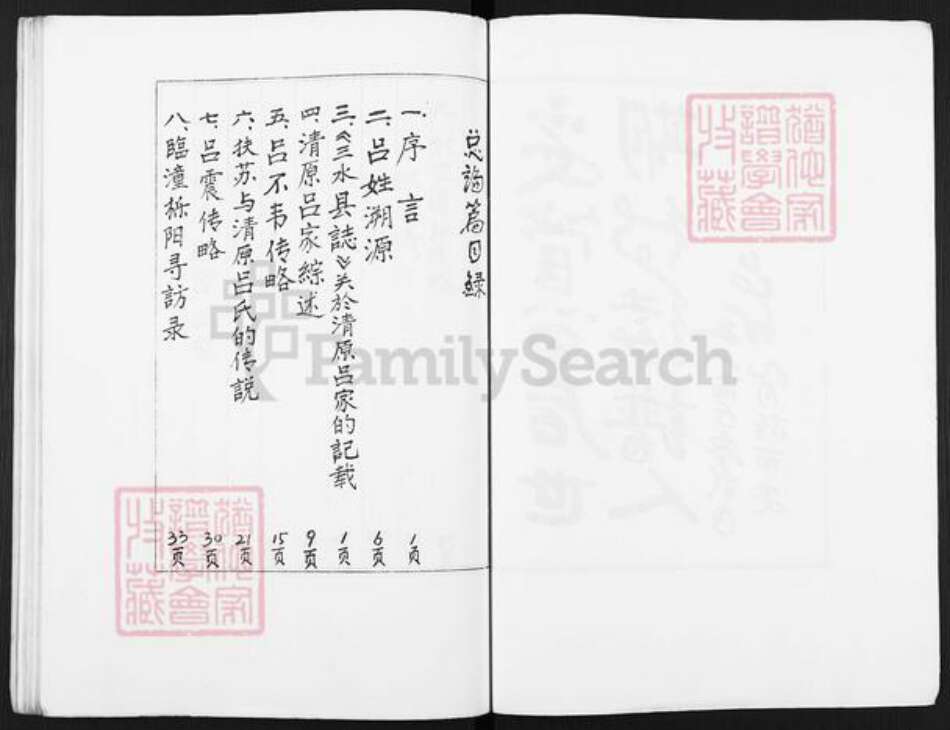 总論篇目録
一、序言 1页
二、吕姓溯源 6页
三、《三水县誌》关於清原吕家的記载 1页
四、清原吕家綜述 9页
五、吕不韦传略 15页
六、扶苏与清原吕氏的传説 21页
七、吕震传略 30页
八、臨潼栎阳寻訪录 33页
FamilySearch
猶他家
譜學會
收藏
猶他家
譜學會
收藏